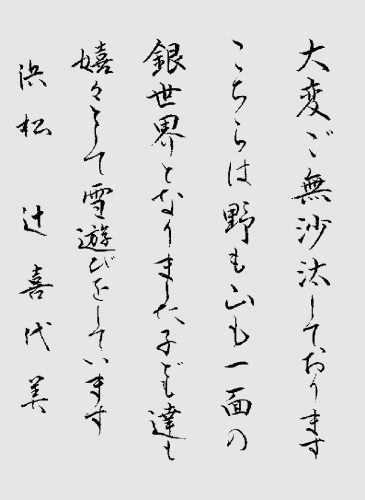 大変ご無沙汰しております
こちらは野も山も一面の
銀世界となりました、子ども達も
嬉々として雪遊びをしています
浜松 辻喜代美